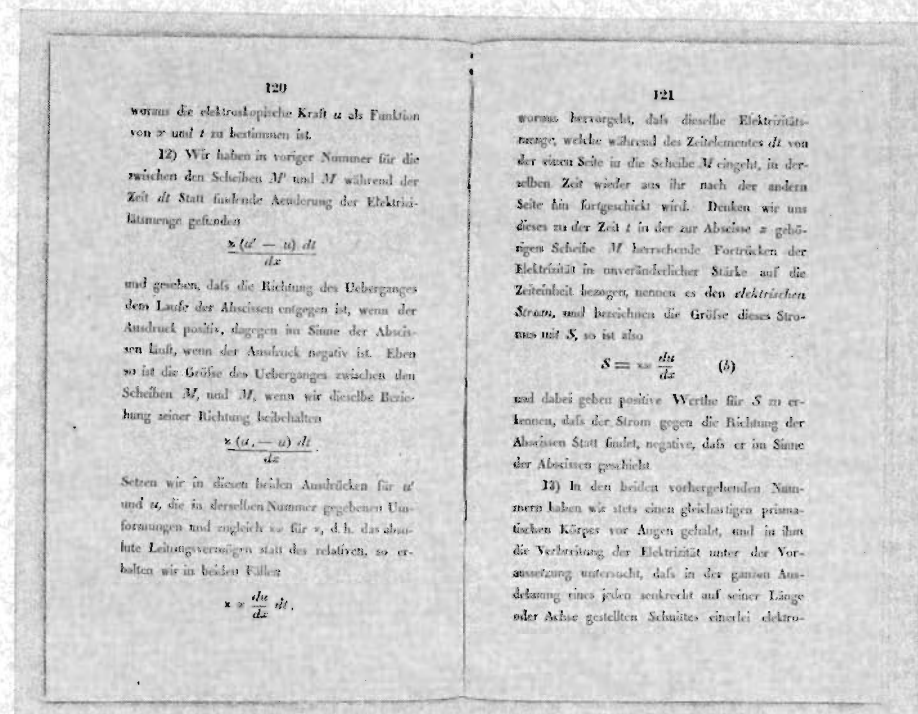 120
woraus die elektroskopische Kraft u als Funktion
von x und t zu bestimmen ist.
12) Wir haben in voriger Nummer für die
zwischen den Scheiben M' und M während der
Zeit dt Statt findende Aenderung der Elektrizi-
tätsmenge gefunden
ϰ (u' — u) dt
dx
und gesehen, daſs die Richtung des Ueberganges
dem Laufe der Abscissen entgegen ist, wenn der
Ausdruck positiv, dagegen im Sinne der Abscis-
sen läuft, wenn der Ausdruck negativ ist. Eben
so ist die Gröſse des Ueberganges zwischen den
Scheiben M, und M, wenn wir dieselbe Bezie-
hung seiner Richtung beibehalten
ϰ (u, — u) dt
dx
Setzen wir in diesen beiden Ausdrücken für u'
und u, die in derselben Nummer gegebenen Um-
formungen und zugleich für ϰ, d. h. das abso-
lute Leitungsvermögen statt des relativen, so er-
halten wir in beiden Fällen
du
dx
dt.
121
woraus hervorgeht, daſs dieselbe Elektrizitäts-
menge, welche während des Zeitelementes dt von
der einen Seite in die Scheibe M eingeht, in der-
selben Zeit wieder aus ihr nach der andern
Seite hin fortgeschickt wird. Denken wir uns
dieses zu der Zeit t in der zur Abscisse x gehö-
rigen Scheibe M herrschende Fortrücken der
Elektrizität in unveränderlicher Stärke auf die
Zeiteinheit bezogen, nennen es den elektrischen
Strom, und bezeichnen die Gröſse dieses Stro-
mes mit S, so ist also
S = du (b)
dx
und dabei geben positive Werthe für S zu er-
kennen, daſs der Strom gegen die Richtung der
Abscissen Statt findet, negative, daſs er im Sinne
der Abscissen geschieht
13) In den beiden vorhergehenden Num-
mern haben wir stets einen gleichartigen prisma-
tischen Körper vor Augen gehabt, und in ihm
die Verbreitung der Elektrizität unter der Vor-
aussetzung untersucht, daſs in der ganzen Aus-
dehnung eines jeden senkrecht auf seiner Länge
oder Achse gestellten Schnittes einerlei elektro-